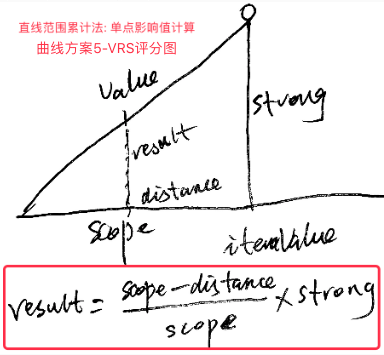 直线范围累计法: 单点影响值计算
曲线方案5-VRS评分图
Value
strong
result
distance
scope
itemValue
result = scope-distance / scope × strong